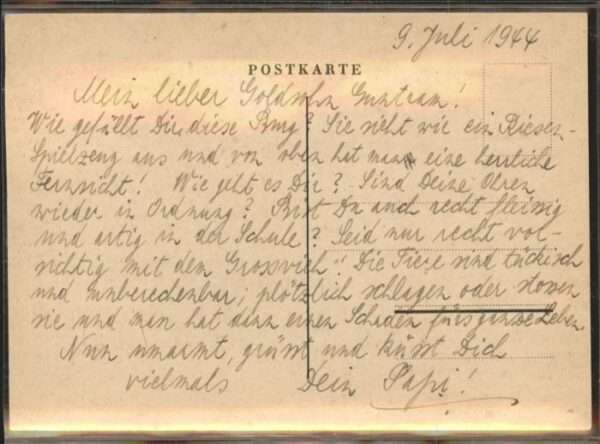 9. Juli 1944
POSTKARTE
Mein lieber Goldsohn Guntram!
Wie gefällt Dir diese Burg? Sie sieht wie ein Riesen-
Spielzeug aus und von oben hat man eine herrliche
Fernsicht! Wie geht es Dir? Sind Deine Ohren
wieder in Ordnung? Bist Du auch recht fleissig
und artig in der Schule? Seid nur recht vor-
sichtig mit dem Grossvieh! Die Tiere sind tückisch
und unberechenbar; plötzlich schlagen oder stossen
sie und man hat dann einen Schaden fürs ganze Leben
Nun umarmt, grüsst und küsst Dich
vielmals Dein Papi!